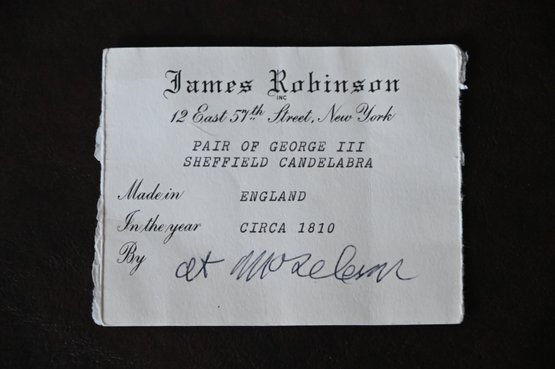 James Robinson
INC
12 East 57th Street, New York
PAIR OF GEORGE III
SHEFFIELD CANDELABRA
Made in ENGLAND
In the year CIRCA 1810
By
at